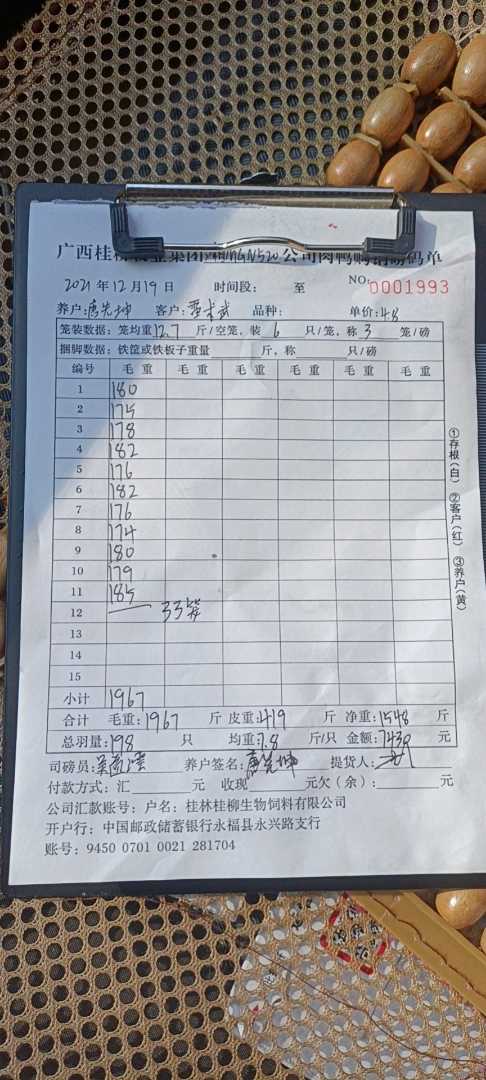 广西桂柳 集团 公司肉鸭 码单
2021年12月19日 时间段: 至 NO:0001993
养户:唐先坤 客户: 品种: 单价:4.8
笼装数据:笼均重12.7斤/空笼,装6只/笼,称3笼/磅
捆脚数据:铁筐或铁板子重量 斤,称 只/磅
编号 毛重 毛重 毛重 毛重 毛重 毛重
1 180
2 175
3 178
4 182
5 176
6 182
7 176
8 174
9 180
10 179
11 185
12 33笼
13
14
15
小计 1967
合计 毛重:1967斤 皮重:419斤 净重:1548斤
总羽量:198只 均重:7.8斤/只 金额:7430元
司磅员: 养户签名:唐先坤 提货人:
付款方式:汇 元 收现 元欠(余): 元
公司汇款账号:户名:桂林桂柳生物饲料有限公司
开户行:中国邮政储蓄银行永福县永兴路支行
账号:9450 0701 0021 281704
①存根(白) ②客户(红) ③养户(黄)